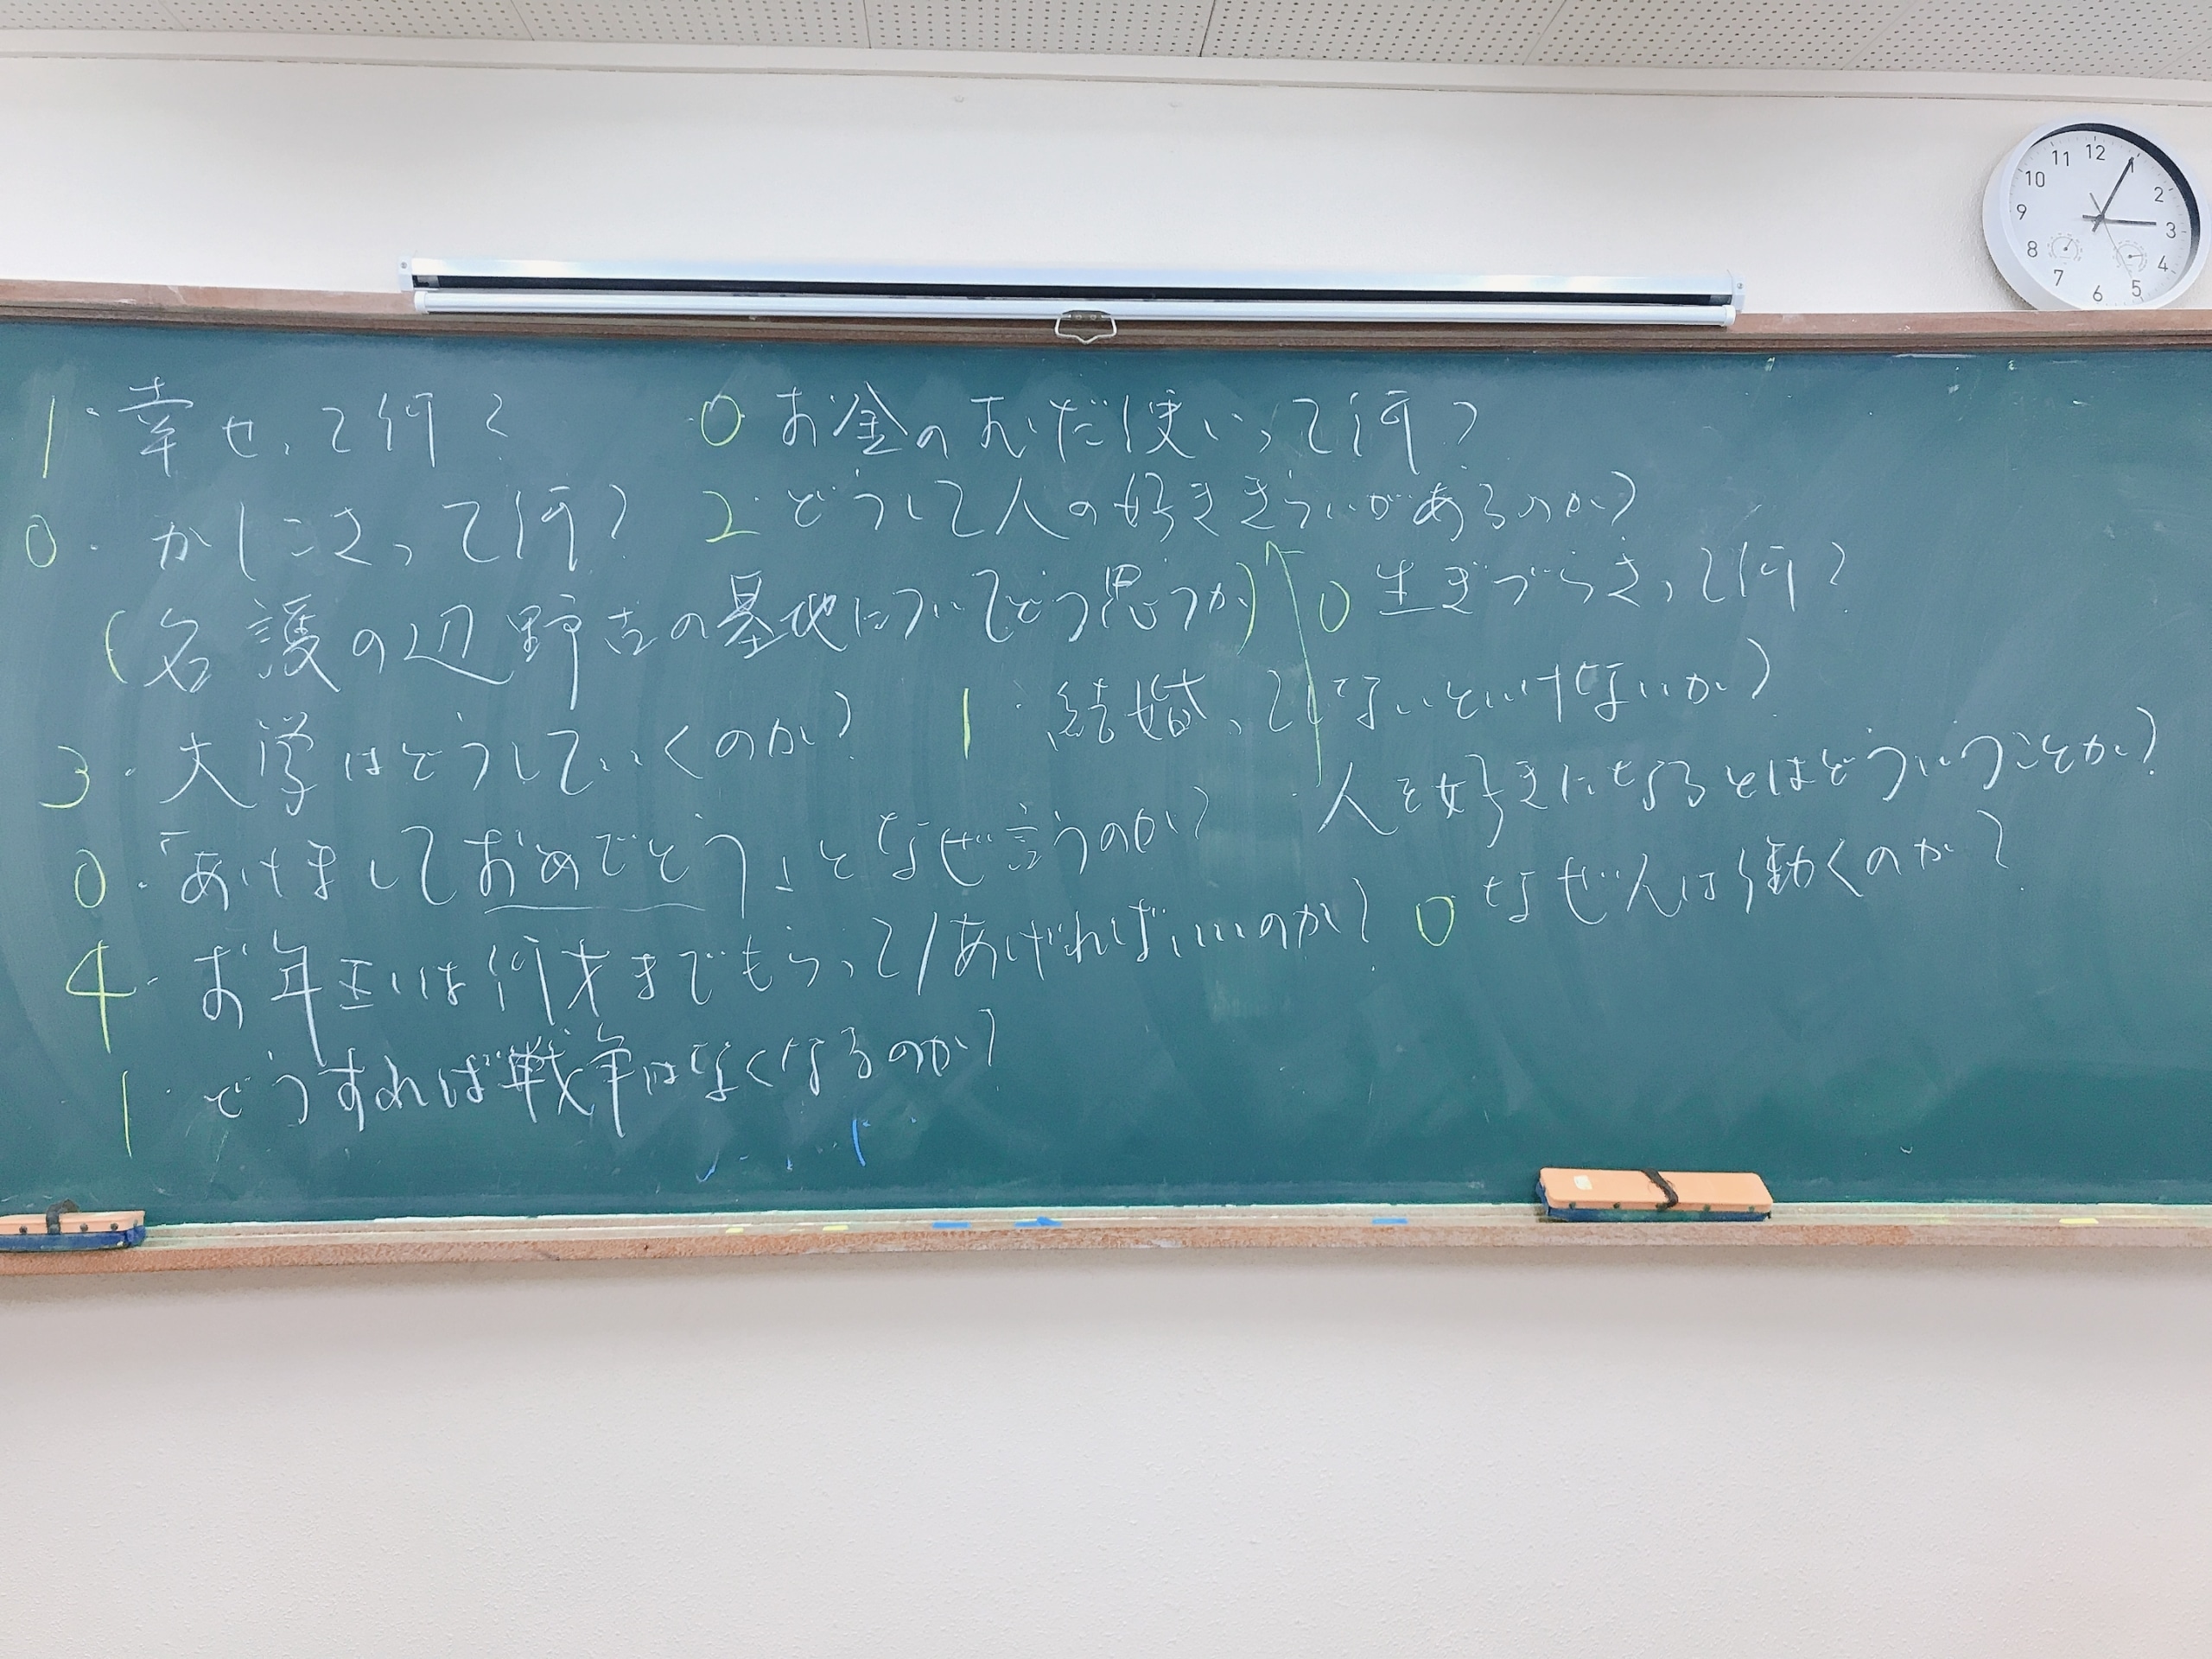 1 ・幸せって何?
0 ・かしこさって何?
(名護の辺野古の基地についてどう思うか)
3 ・大学はどうしていくのか?
0 ・「あけましておめでとう」となぜ言うのか?
4 ・お年玉は何才までもらって/あげればいいのか?
1 ・どうすれば戦争はなくなるのか?
0 お金のむだ使いって何?
2 ・どうして人の好ききらいがあるのか?
0 生きづらさって何?
1 ・結婚ってしないといけないか?
・人を好きになるとはどういうことか?
0 なぜ人は働くのか?
11 12 1
10 2
9 3
8 4
7 6 5